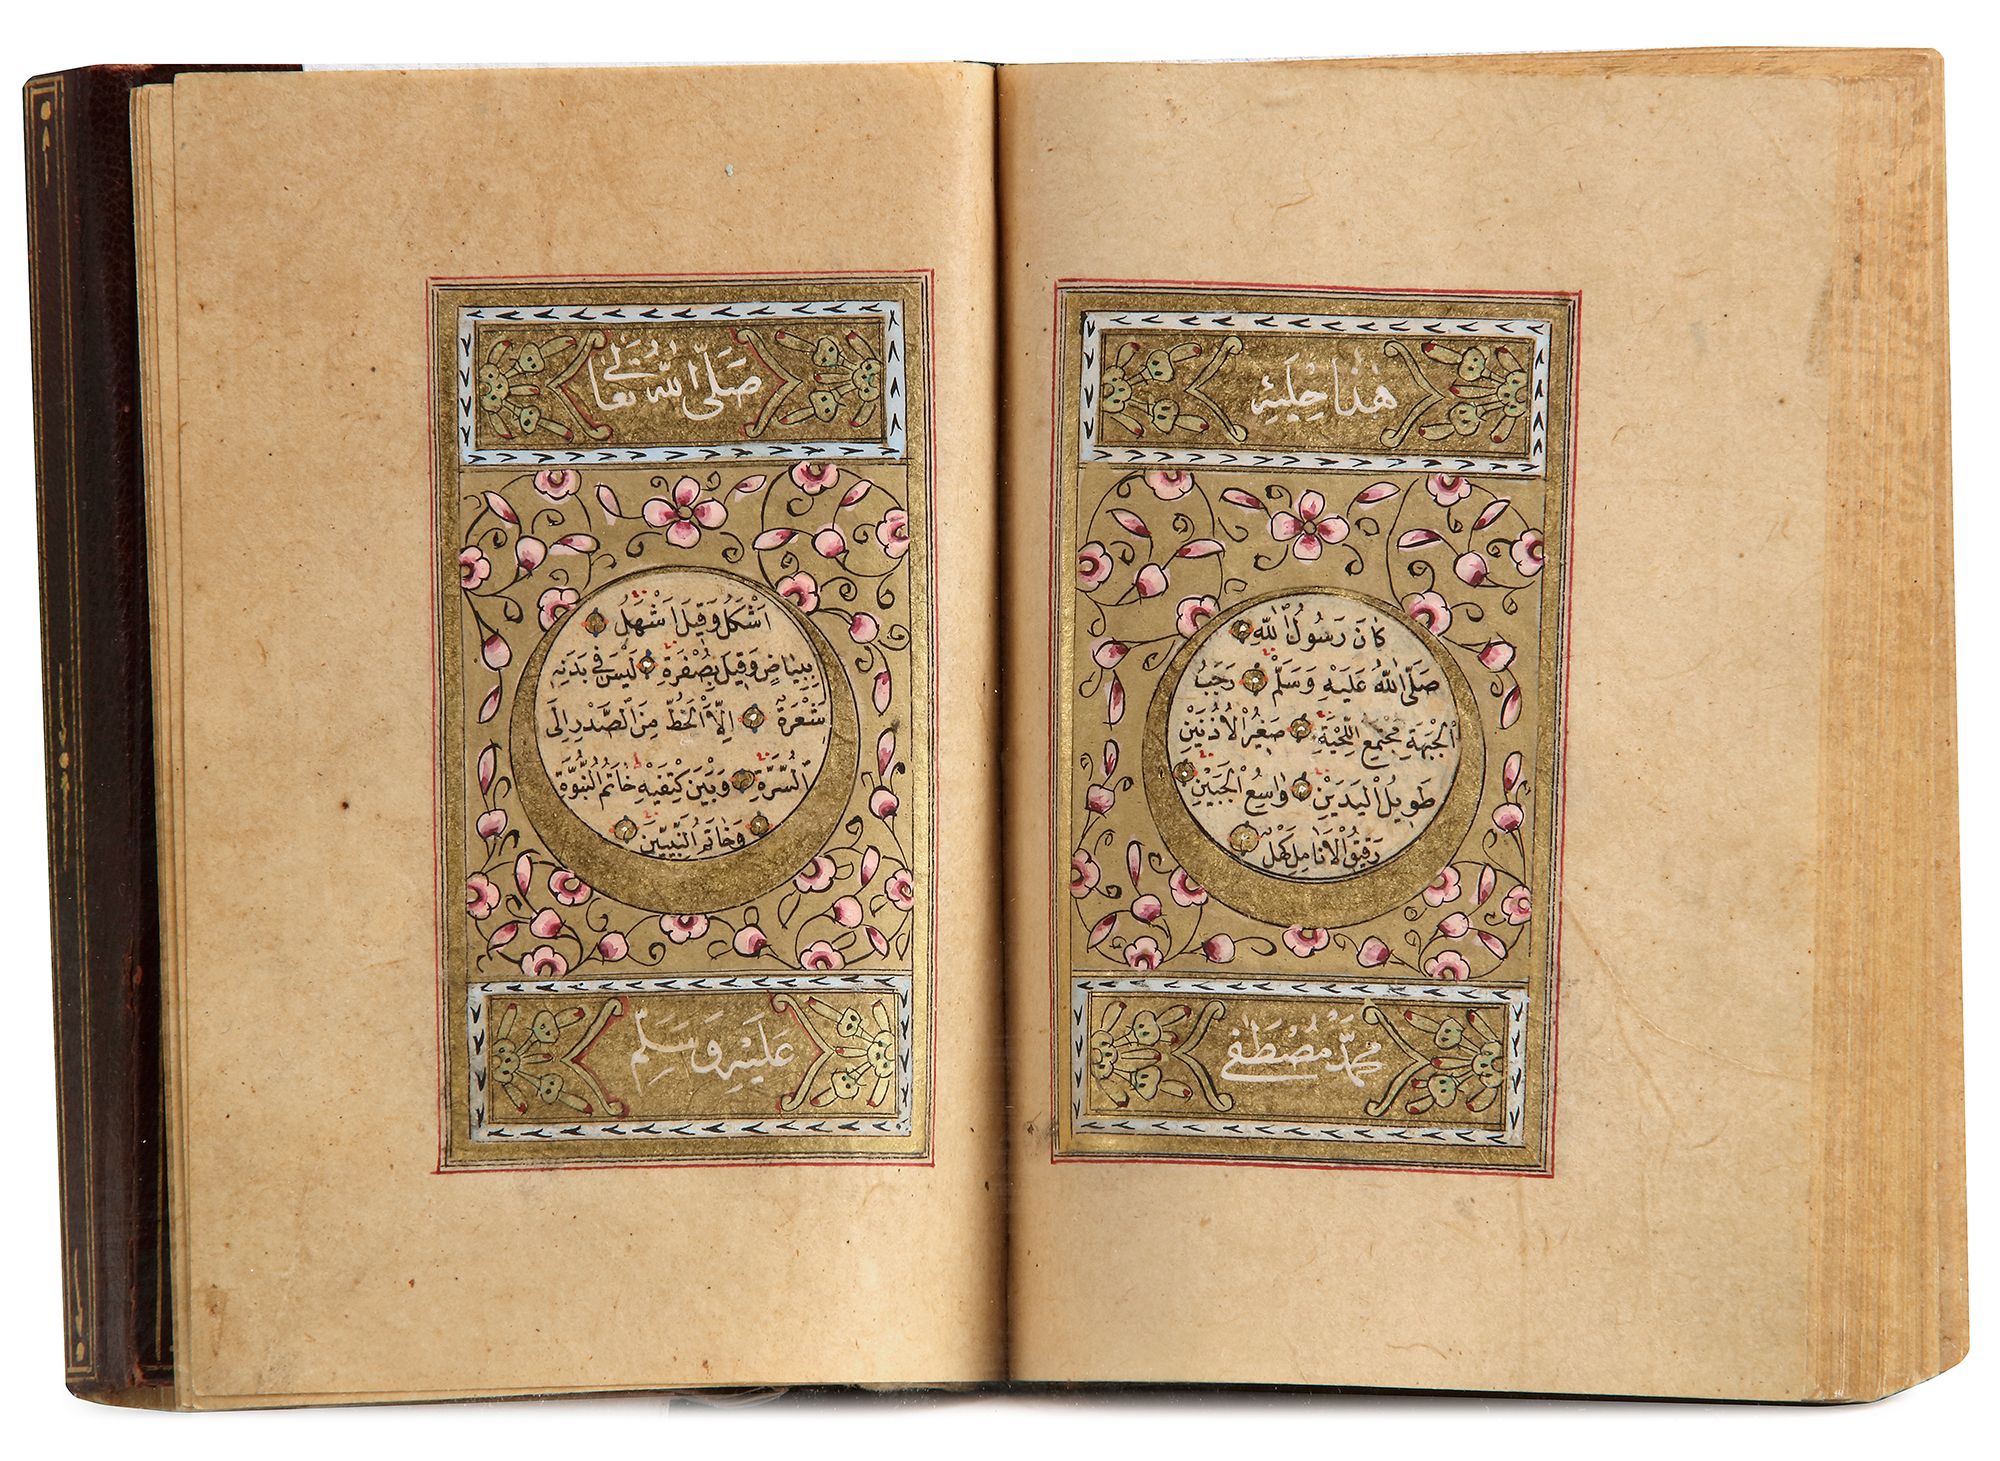 هٰذَا حِلْيَةُ
كَانَ رَسُولُ اللّٰهِ
صَلَّى اللّٰهُ عَلَيْهِ وَسَلَّمْ رَحَبُ
الْجَبْهَةِ مُجْتَمِعُ اللِّحْيَةِ صَغِيرُ الْاُذُنَيْنِ
طَوِيلُ الْيَدَيْنِ وَاسِعُ الْجَبِينْ
رَقِيقُ الْاَنَامِلِ كَهْلٌ
مُحَمَّدْ مُصْطَفٰى
صَلَّى اللّٰهُ تَعَالٰى
اَشْكَلُ وَقِيلَ اَشْهَلُ
بِبَيَاضٍ وَقِيلَ بِصُفْرَةٍ لَيْسَ فِى بَدَنِهِ
شَعْرَةٌ اِلَّا الْخَطُّ مِنَ الصَّدْرِ اِلَى
السُّرَّةِ وَبَيْنَ كِتْفَيْهِ خَاتَمُ النُّبُوَّةِ
وَخَاتَمُ النَّبِيِّينَ
عَلَيْهِ وَسَلَّمْ